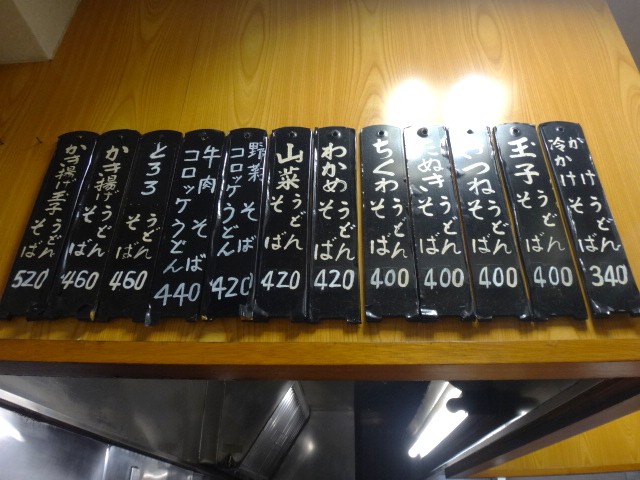 冷かけ かけ うどん そば 340
玉子 うどん そば 400
きつね うどん そば 400
たぬき うどん そば 400
ちくわ うどん そば 400
わかめ うどん そば 420
山菜 うどん そば 420
野菜コロッケ うどん そば 420
牛肉コロッケ うどん そば 440
とろろ うどん そば 460
かき揚げ うどん そば 460
かき揚げ玉子 うどん そば 520